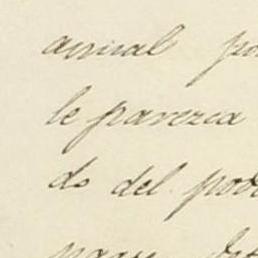 animal po
le parezca
do del pod